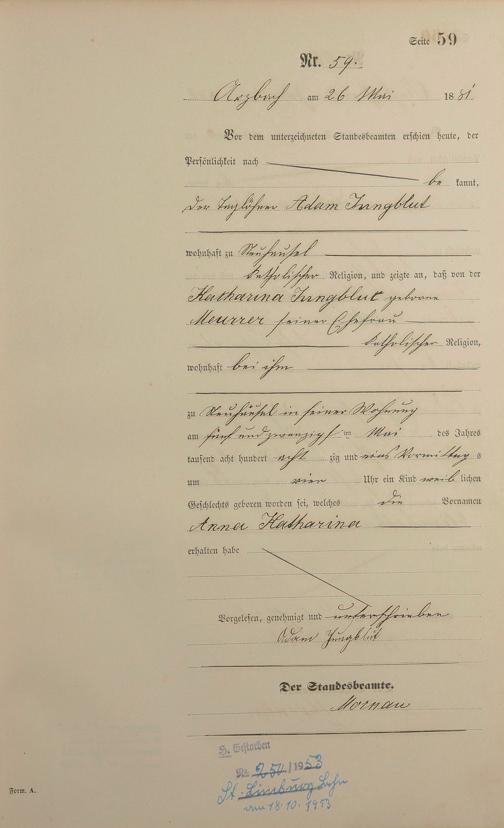 Seite 59
Nr. 59.
Arzbach am 26 Mai 1881
Vor dem unterzeichneten Standesbeamten erschien heute, der
Persönlichkeit nach
be kannt,
der Taglöhner Adam Jungblut
wohnhaft zu Neuhäusel
katholischer Religion, und zeigte an, daß von der
Katharina Jungblut geborne
Meurrer seiner Ehefrau
katholischer Religion,
wohnhaft bei ihm
zu Neuhäusel in seiner Wohnung
am fünf und zwanzigsten Mai des Jahres
tausend acht hundert acht zig und eins Vormittag s
um vier Uhr ein Kind weib lichen
Geschlechts geboren worden sei, welches die Vornamen
Anna Katharina
erhalten habe
Vorgelesen, genehmigt und unterschrieben
Adam Jungblut
Der Standesbeamte.
Mornau
Gestorben
Nr. 250/1953
St. Limburg Lahn
am 18.10.1953
Form. A.